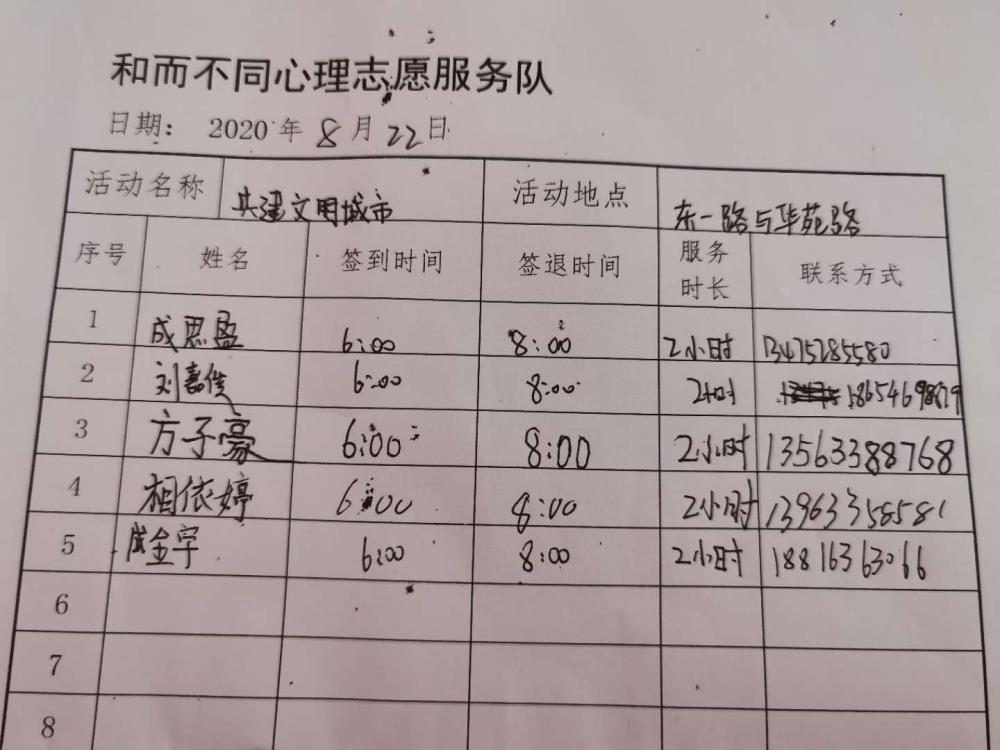 和而不同心理志愿服务队
日期： 2020 年 8 月 22 日
活动名称 共建文明城市 活动地点 东一路与华苑路
序号 姓名 签到时间 签退时间 服务时长 联系方式
1 成思盈 6:00 8:00 2小时 13475285580
2 刘嘉俊 6:00 8:00 2小时
3 方子豪 6:00 8:00 2小时 13563388768
4 相依婷 6:00 8:00 2小时 13963358581
5 成金宇 6:00 8:00 2小时 18816363066
6
7
8